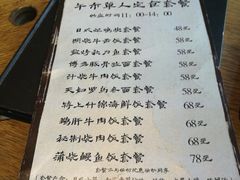 午市單人定食套餐
供应时间:11:00-14:00
日式 套餐 48元
照烧牛 套餐 58元
盐烤秋刀鱼套餐 58元
博多豚骨拉面套餐 58元
汁烧牛肉饭套餐 58元
天妇罗乌冬面套餐 58元
特上什锦海鲜饭套餐 68元
鹅肝牛肉饭套餐 68元
秘制烧肉饭套餐 68元
蒲烧鳗鱼饭套餐 78元